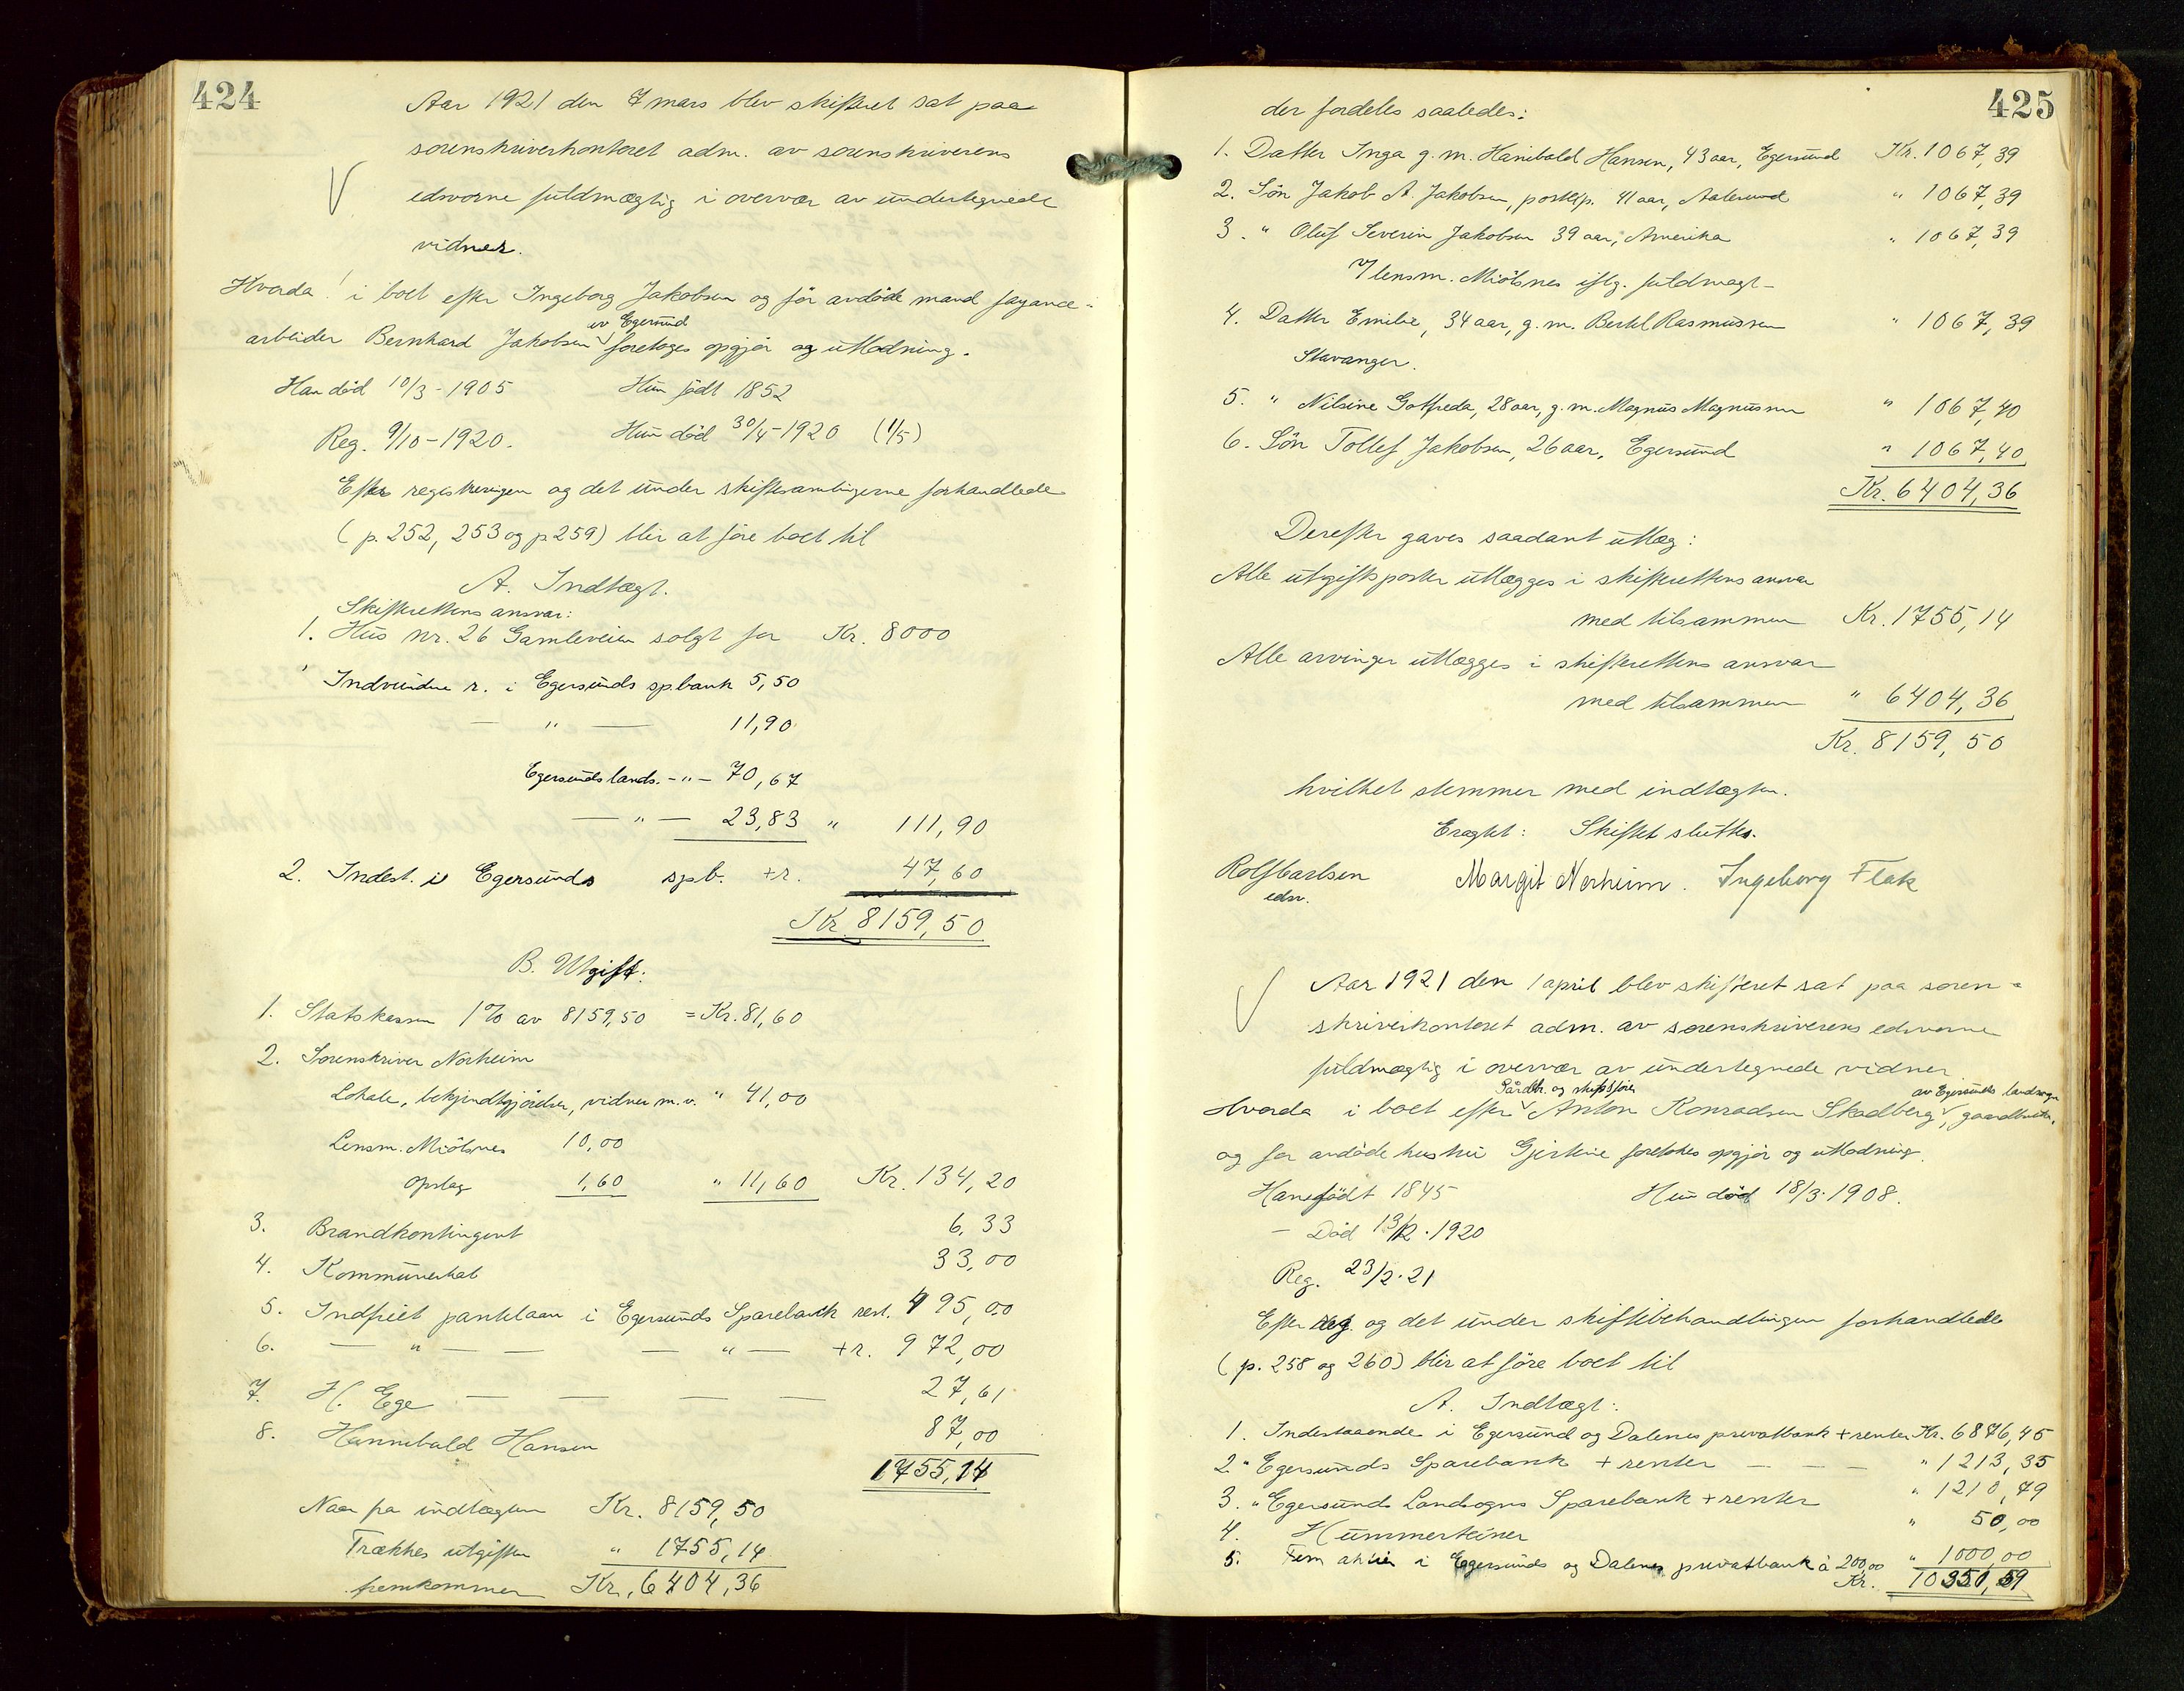 424
Aar 1921 den 7 mars blev skifteret sat paa
sorenskriverkontoret adm. av sorenskriverens
edsvorne fuldmægtig i overvær av undertegnede
vidner.
Hvorda! i boet efter Ingeborg Jakobsen og før avdøde mand fayance-
av Egersund
arbeider Bernhard Jakobsen foretages opgjør og utlodning.
Han død 10/3-1905 Hun født 1852
Reg. 9/10-1920. Hun død 30/4-1920 (1/5)
Efter registreringen og det under skiftesamlingerne forhandlede
(p. 252, 253 og p 259) blir at føre boet til
A. Indtægt.
Skifterettens ansvar:
1. Hus nr. 26 Gamleveien solgt for Kr. 8000
Indvundne r. i Egersunds sp.bank 5,50
— " — 11,90
Egersunds lands. -"- 70,67
— " — 23,83 " 111,90
2. Indest. i Egersunds spb. + r. 47,60
Kr. 8159,50
B. Utgift:
1. Statskassen 1% av 8159,50 = Kr. 81,60
2. Sorenskriver Norheim
Lokale, bekjendtgjørelser, vidner m.v. " 41,00
Lensm. Miölsnes 10,00
Opslag 1,60 " 11,60 Kr. 134,20
3. Brandkontingent 6,33
4. Kommuneskat 33,00
5. Indfriet pantelaan i Egersunds Sparebank rest. 495,00
6. — " — — — " — + r. 972,00
7. H. Ege — — — — 27,61
8. Hannibald Hansen 87,00
1755,14
Naar fra indtægten Kr. 8159,50
Trækkes utgiften " 1755,14
fremkommer Kr. 6404,36
425
der fordeles saaledes:
1. Datter Inga g.m. Hanibald Hansen, 43 aar, Egersund Kr. 1067,39
2. Søn Jakob A. Jakobsen, postexp. 41 aar, Aalesund " 1067,39
3. " Oluf Severin Jakobsen 39 aar, Amerika " 1067,39
v/ lensm. Miölsnes iflg. fuldmagt-
4. Datter Emilie, 34 aar, g.m. Bertel Rasmussen " 1067,39
Stavanger.
5. " Nilsine Gotfreda, 28 aar, g.m. Magnus Magnussen " 1067,40
6. Søn Tollef Jakobsen, 26 aar, Egersund " 1067,40
Kr. 6404,36
Derefter gaves saadant utlæg:
Alle utgiftsposter utlægges i skifterettens ansvar
med tilsammen Kr. 1755,14
Alle arvinger utlægges i skifterettens ansvar
med tilsammen " 6404,36
Kr. 8159,50
hvilket stemmer med indtægten.
Eragtet: Skiftet sluttes.
Rolf Carlsen Margit Norheim. Ingeborg Flak
edsv.
Aar 1921 den 1 april blev skifteret sat paa soren-
skriverkontoret adm. av sorenskriverens edsvorne
fuldmægtig i overvær av undertegnede vidner
Gårdbr. og skipsfører av Egersunds landsogn
Hvorda i boet efter Anton Konradsen Skadberg, gaardbruker,
og før avdøde hustru Gjertine foretokes opgjør og utlodning.
Han født 1845 Hun død 18/3.1908.
— Död 13/12.1920
Reg. 23/2.21
Efter reg. og det under skiftebehandlingen forhandlede
(p. 258 og 260) blir at føre boet til
A. Indtægt:
1. Indestaaende i Egersund og Dalenes privatbank + renter Kr. 6876,45
2. " Egersunds Sparebank + renter — — — " 1213,35
3. " Egersunds Landsogns Sparebank + renter " 1210,79
4. Hummerteiner " 50,00
5. Fem aktier i Egersunds og Dalenes privatbank à 200,00 " 1000,00
Kr. 10350,59